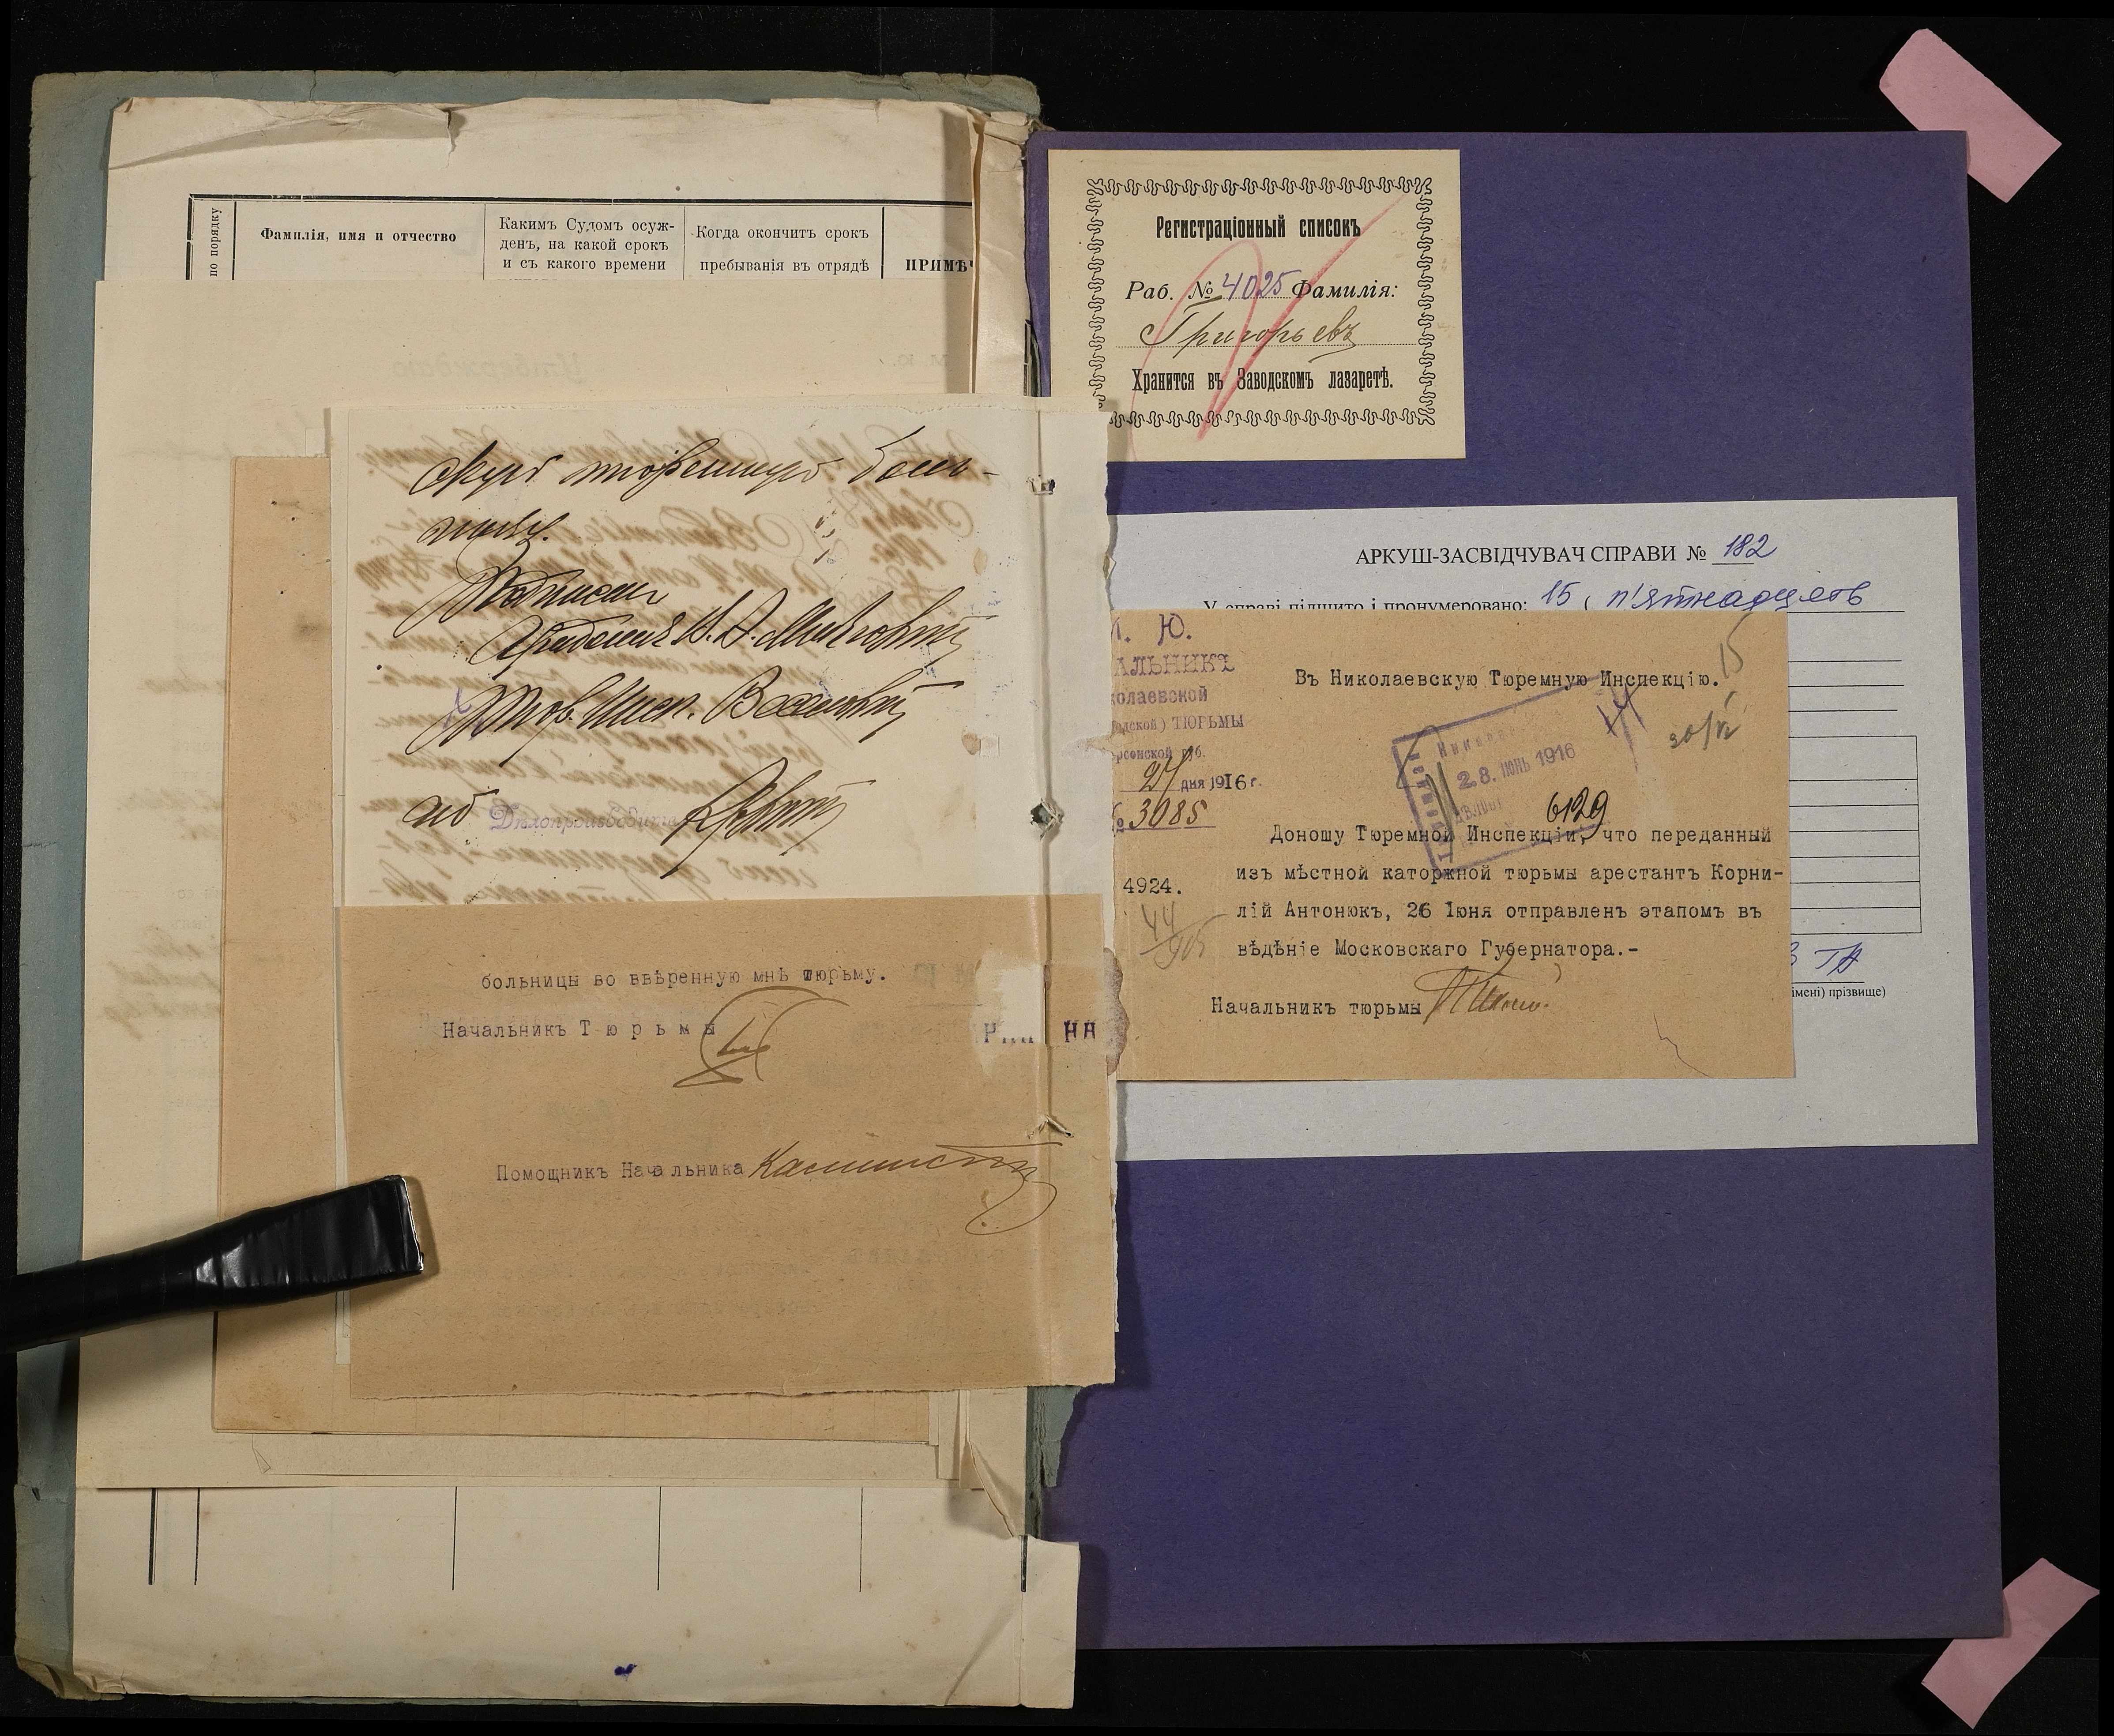 по порядку
Фамилія, имя и отчество
Какимъ Судомъ осуж-
денъ, на какой срокъ
и съ какого времени
Когда окончитъ срокъ
пребыванія въ отрядѣ
ПРИМѢЧ
скую тюремную боль-
ницу.
Подписали
Тюр. Инсп.
Дѣлопроизводитель
больницы во ввѣренную мнѣ тюрьму.
Начальникъ Тюрьмы
Помощникъ Начальника
Регистраціонный списокъ
Раб. № 4025 Фамилія:
Григорьевъ
Хранится въ Заводскомъ лазаретѣ.
АРКУШ-ЗАСВІДЧУВАЧ СПРАВИ № 182
У справі підшито і пронумеровано: 15 ( п'ятнадцять
імені) прізвище)
. Ю.
АЛЬНИКЪ
колаевской
одской) ТЮРЬМЫ
рсонской губ.
27 дня 1916 г.
№ 3085
4924.
15
Въ Николаевскую Тюремную Инспекцію.
28. ІЮНЬ 1916
6129
Доношу Тюремной Инспекціи, что переданный
изъ мѣстной каторжной тюрьмы арестантъ Корни-
лій Антонюкъ, 26 Іюня отправленъ этапомъ въ
вѣдѣніе Московскаго Губернатора.-
Начальникъ тюрьмы